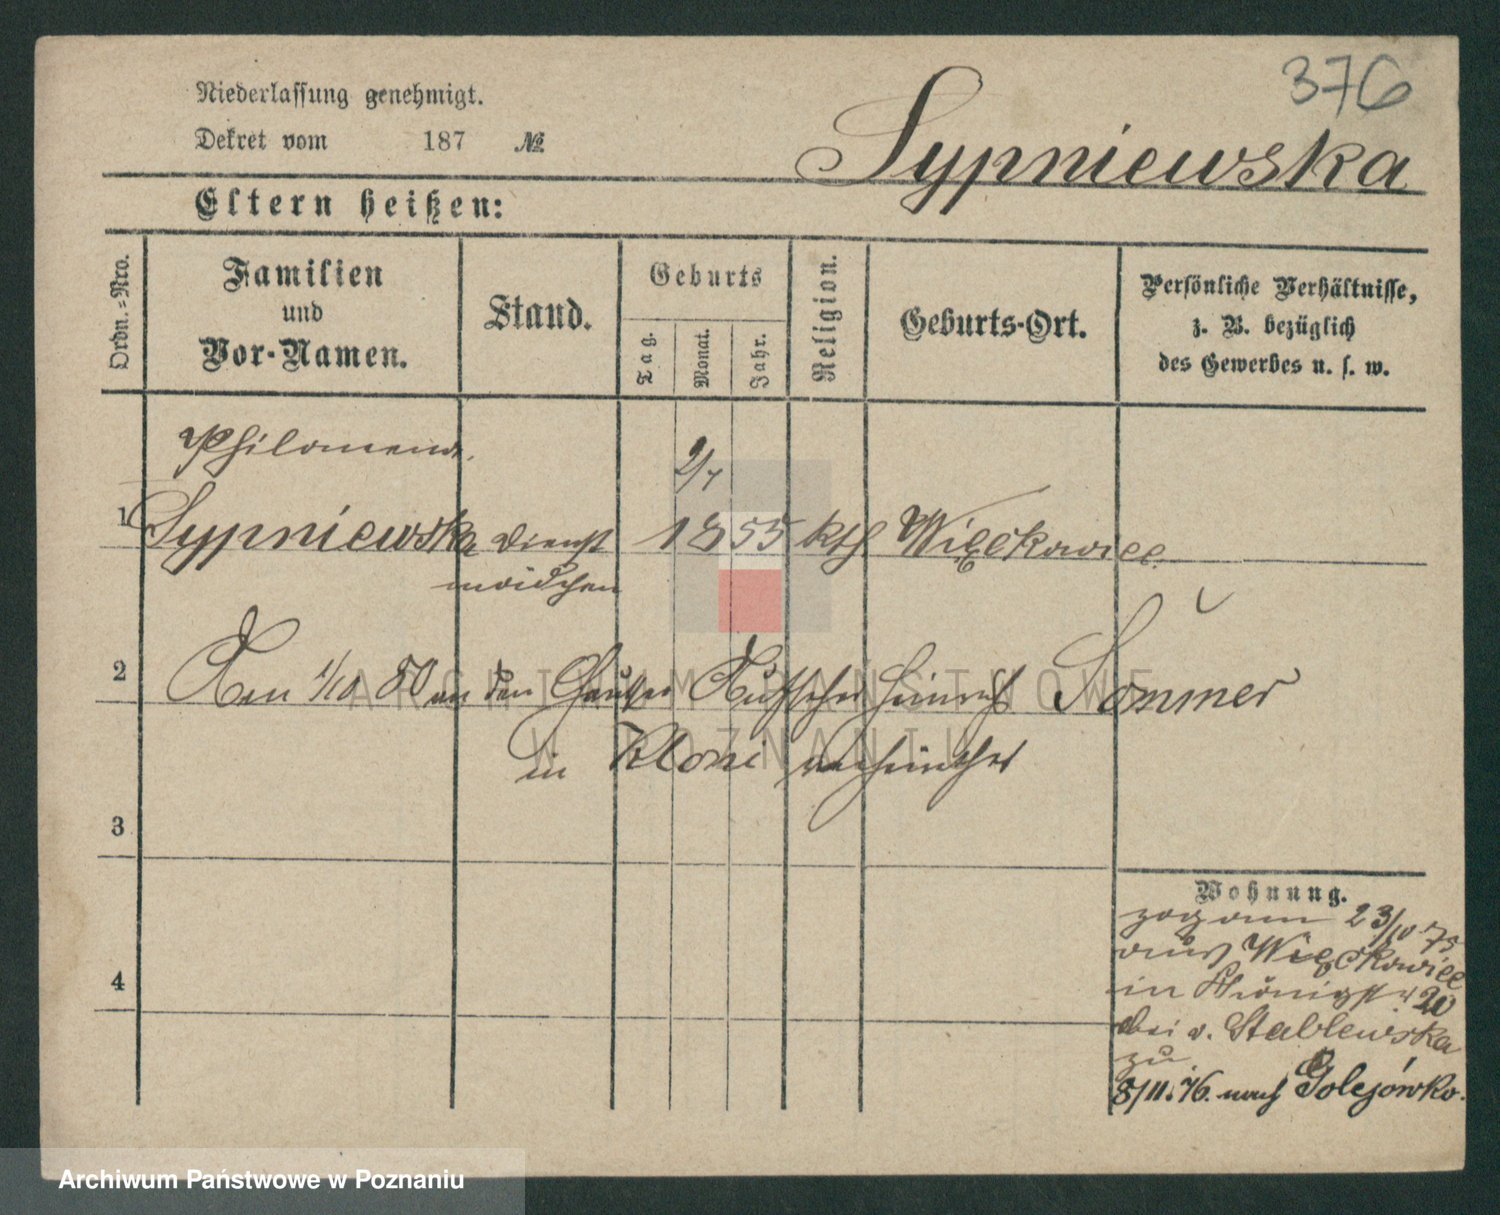 376
Niederlassung genehmigt.
Dekret vom 187 №
Sypniewska
Eltern heißen:
Ordn.-Nro.
Familien
und
Vor-Namen.
Stand.
Geburts
Tag.
Monat.
Jahr.
Religion.
Geburts-Ort.
Persönliche Verhältnisse,
z. B. bezüglich
des Gewerbes u. s. w.
Philomena
2/7
1 Sypniewska Dienst 1855 kth Więckowice
mädchen
2 Den 1/10 80 an den Kutscher Heinrich Sommer
in
3
4
Wohnung.
zog am 23/10 75
aus Więckowice
in Königst 20
bei v. Stablewska
zu.
8/11.76. nach Golejówko.
ARCHIWUM PAŃSTWOWE
W POZNANIU
Archiwum Państwowe w Poznaniu